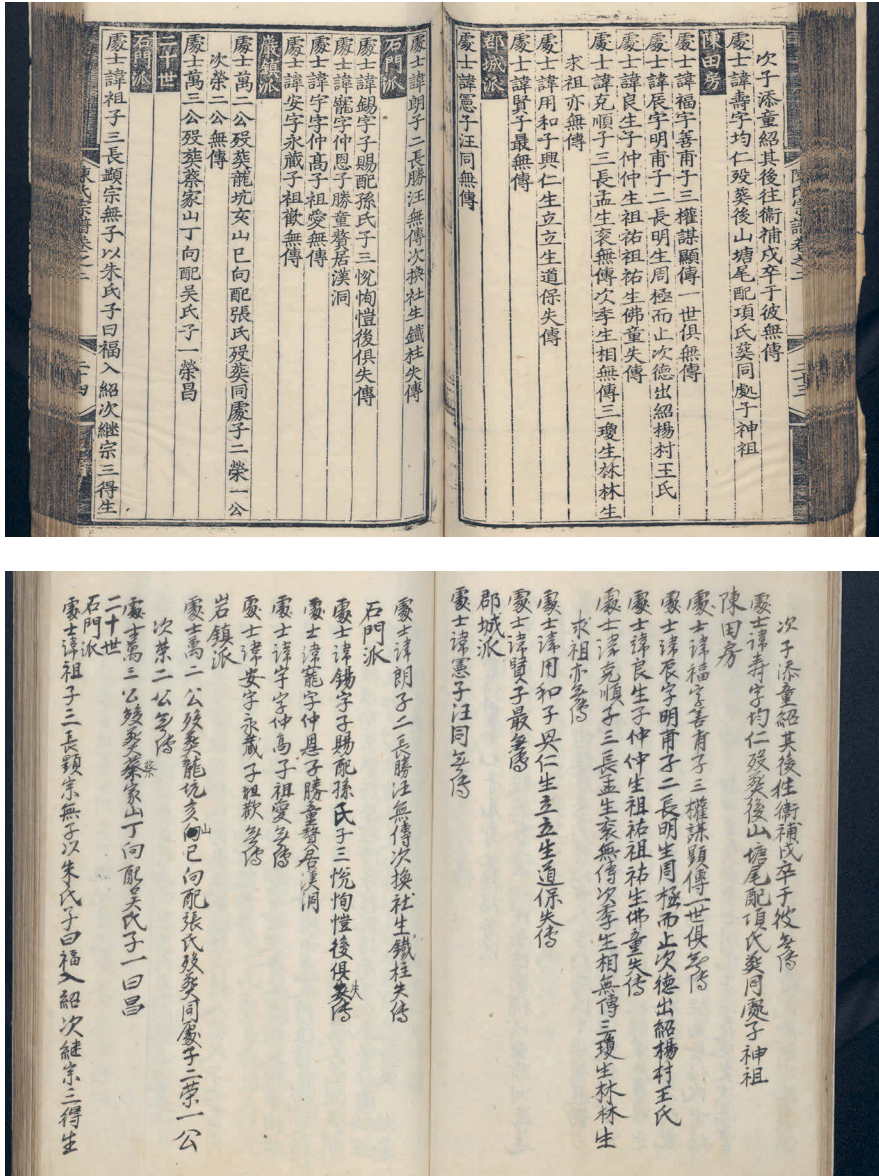 次子添童紹其後往衞補戍卒于彼無傳
處士諱壽字均仁歿葬後山塘尾配項氏葬同處子神祖
陳田房
處士諱福字善甫子三權謀顯傳一世俱無傳
處士諱辰字明甫子二長明生周極而止次德出紹楊村王氏
處士諱良生子仲仲生祖祐祖祐生佛童失傳
處士諱克順子三長孟生衮無傳次季生相無傳三瓊生林林生
求祖亦無傳
處士諱用和子興仁生立立生道保失傳
處士諱賢子最無傳
郡城派
處士諱憲子汪同無傳
處士諱朗子二長勝汪無傳次換社生鐵柱失傳
石門派
處士諱錫字子賜配孫氏子三恱恂愷後俱失傳
處士諱寵字仲恩子勝童贅居漢洞
處士諱宇字仲高子祖愛無傳
處士諱安字永葴子祖歡無傳
巖鎮派
處士萬二公歿葬龍坑亥山巳向配張氏歿葬同處子二榮一公
次榮二公無傳
處士萬三公歿葬蔡家山丁向配吴氏子一榮昌
二十世
石門派
處士諱祖子三長顯宗無子以朱氏子曰福入紹次継宗三得生
陳氏宗譜卷之二
二十三
陳氏宗譜卷之二
二十四
次子添童紹其後往衞補戍卒于彼無傳
處士諱壽字均仁歿葬後山塘尾配項氏葬同處子神祖
陳田房
處士諱福字善甫子三權謀顕傳一世俱無傳
處士諱辰字明甫子二長明生周極而止次德出紹楊村王氏
處士諱良生子仲仲生祖祐祖祐生佛童失傳
處士諱克順子三長孟生衮無傳次季生相無傳三瓊生林林生
求祖亦無傳
處士諱用和子興仁生立立生道保失傳
處士諱賢子最無傳
郡城派
處士諱憲子汪同無傳
處士諱朗子二長勝汪無傳次換社生鐵柱失傳
石門派
處士諱錫字子賜配孫氏子三悅恂愷後俱失傳
處士諱寵字仲恩子勝童贅居漢洞
處士諱宇字仲高子祖愛無傳
處士諱安字永葴子祖歡無傳
岩鎮派
處士萬二公歿葬龍坑亥山巳向配張氏歿葬同處子二荣一公
次荣二公無傳
處士萬三公歿葬蔡家山丁向配吴氏子一曰昌
二十世
石門派
處士諱祖子三長顕宗無子以朱氏子曰福入紹次継宗三得生